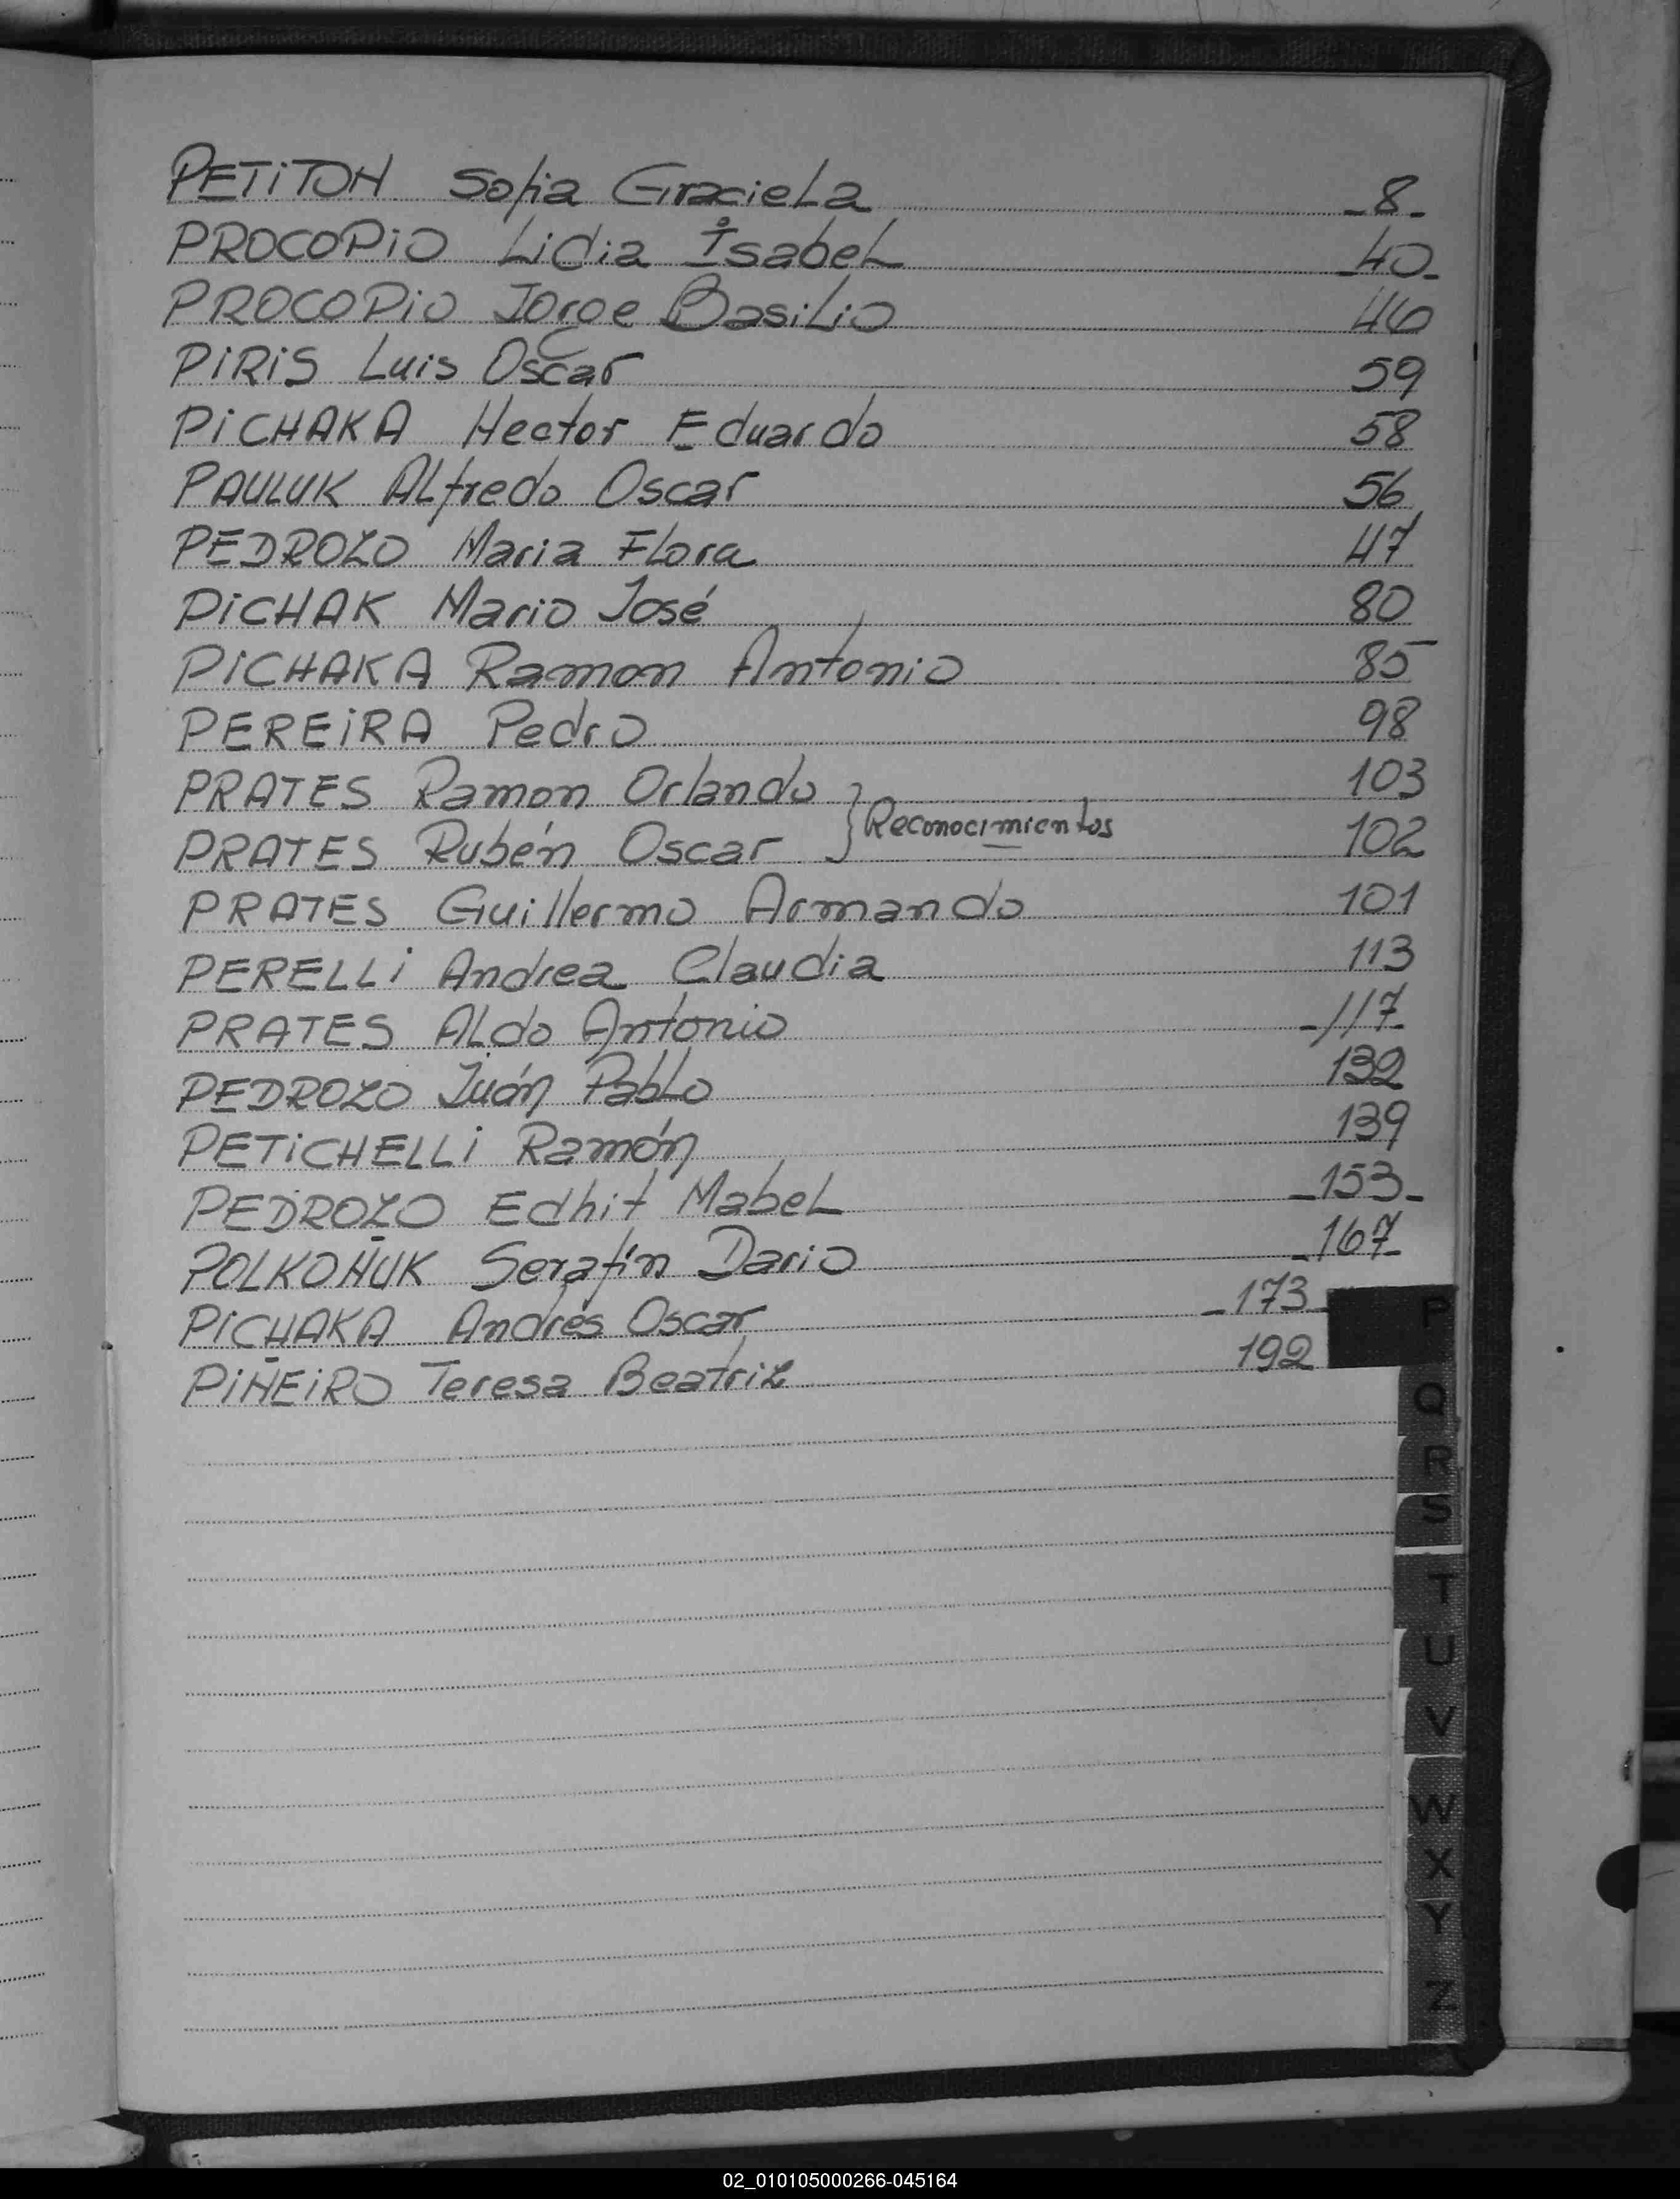 PETITON Sofia Graciela -8-
PROCOPIO Lidia Isabel -40-
PROCOPIO Jorge Basilio 46
PIRIS Luis Oscar 59
PICHAKA Hector Eduardo 58
PAULUK Alfredo Oscar 56
PEDROZO Maria Flora 47
PICHAK Mario José 80
PICHAKA Ramon Antonio 85
PEREIRA Pedro 98
PRATES Ramon Orlando 103
} Reconocimientos
PRATES Rubén Oscar 102
PRATES Guillermo Armando 101
PERELLI Andrea Claudia 113
PRATES Aldo Antonio -117-
PEDROZO Juán Pablo 132
PETICHELLI Ramón 139
PEDROZO Edhit Mabel -153-
POLKOÑUK Serafín Dario -167-
PICHAKA Andrés Oscar -173-
PIÑEIRO Teresa Beatriz 192
P
Q
R
S
T
U
V
W
X
Y
Z
02_010105000266-045164